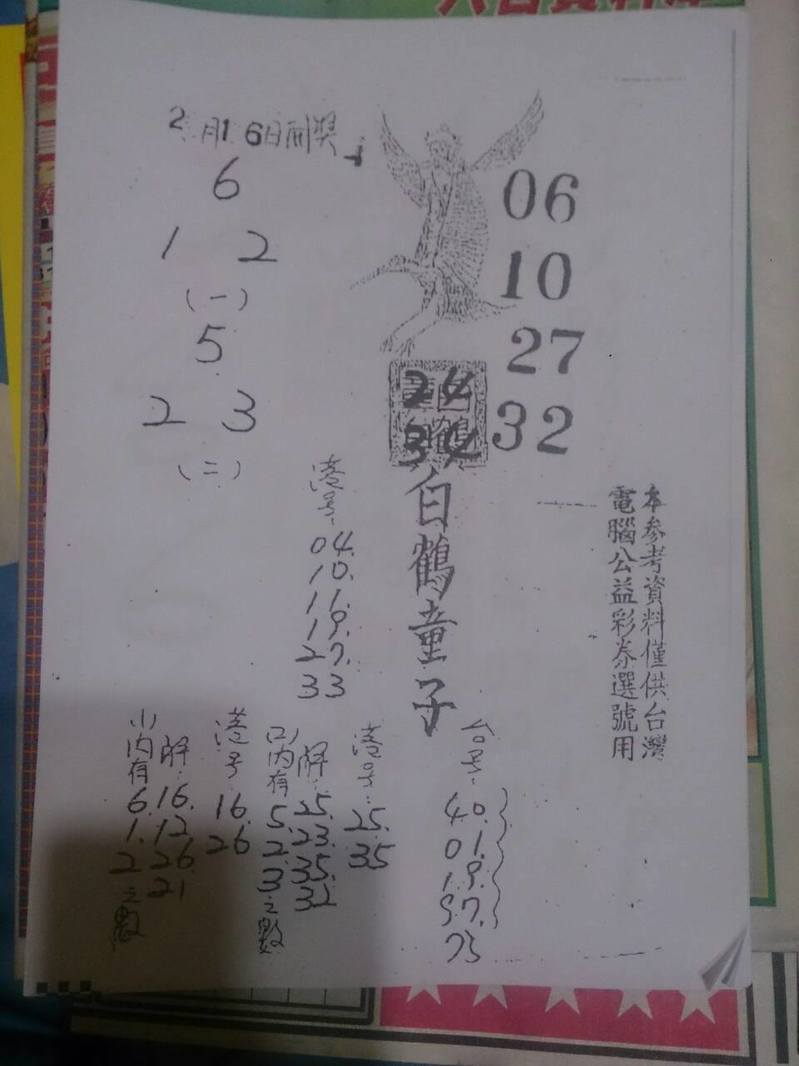 2月16日開獎
6
1 2
(一)
5
2 3
(二)
06
10
27
32
24
34
白鶴童子
本參考資料僅供台灣
電腦公益彩券選號用
港号:
04.
10.
11.
19.
27.
33
台号:
40.
01.
19.
97.
73
港号:
25.
35
(二)内有
5.
2.
3
之數
解:
25.
23.
35.
32
港号:
16.
26
(一)内有
6.
1.
2
之數
解:
16.
12
26
21